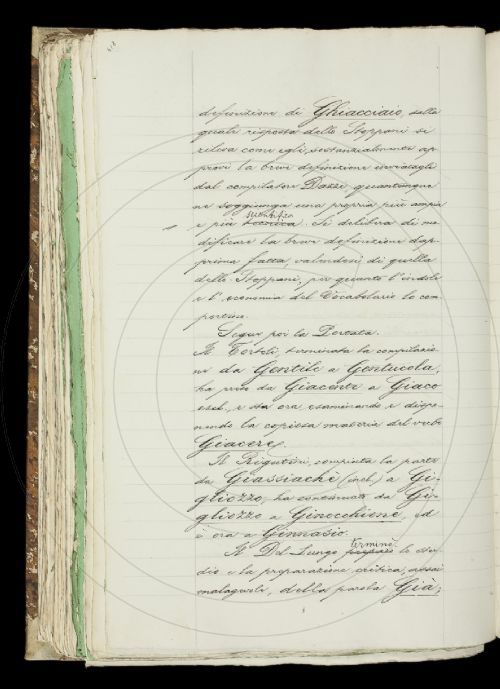 definizione di Ghiacciaio, dalla
quale risposta dello Stoppani si
rileva come egli, sostanzialmente ap
provi la breve definizione inviatagli
dal compilatore Dazzi, quantunque
ne soggiunga una propria più ampia
scientifica
e più tecnica. Si delibera di mo
dificare la breve definizione dap-
prima fatta, valendosi di quella
dello Stoppani, per quanto l'indole
e l'economia del Vocabolario lo com
portino.
Segue poi la Portata.
Il Tortoli, terminata la compilazio
ne da Gentile a Gentucola,
ha preso da Giacente a Giaco
escl., e sta ora esaminando e dispo-
nendo la copiosa materia del verbo
Giacere.
Il Rigutini, compiuta la parte
da Giassiachè (incl.) a Gi-
gliozzo, ha continuato da Gi-
gliozzo a Ginocchione, ed
è ora a Ginnasio.
terminò
Il Del-Lungo lo stu-
dio e la preparazione critica, assai
malagevole, della parola Già;